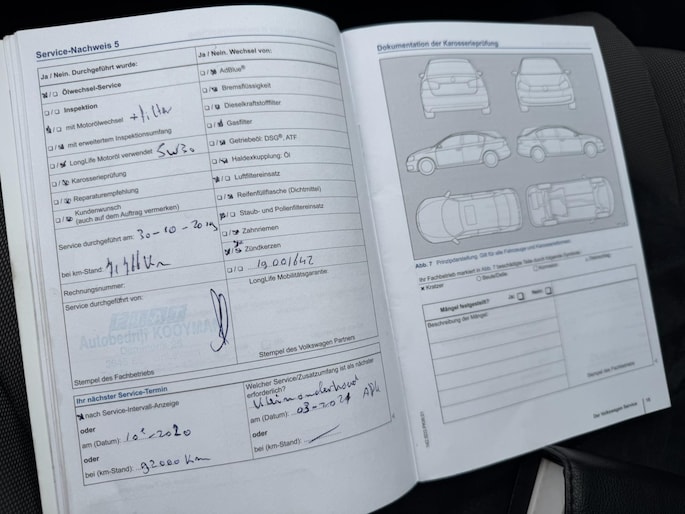 Service-Nachweis 5
Ja / Nein. Durchgeführt wurde:
Ölwechsel-Service
Inspektion
mit Motorölwechsel + filter
mit erweitertem Inspektionsumfang
LongLife Motoröl verwendet 5W30
Karosserieprüfung
Reparaturempfehlung
Kundenwunsch
(auch auf dem Auftrag vermerken)
Service durchgeführt am: 30-10-2019
bei km-Stand: Km
Rechnungsnummer:
Service durchgeführt von:
Autobedrijf
Stempel des Fachbetriebs
Ja / Nein. Wechsel von:
AdBlue®
Bremsflüssigkeit
Dieselkraftstofffilter
Gasfilter
Getriebeöl: DSG®, ATF
Haldexkupplung: Öl
Luftfiltereinsatz
Reifenfüllflasche (Dichtmittel)
Staub- und Pollenfiltereinsatz
Zahnriemen
Zündkerzen
19001642
LongLife Mobilitätsgarantie
Stempel des Volkswagen Partners
Ihr nächster Service-Termin
nach Service-Intervall-Anzeige
oder
am (Datum): 10-2020
oder
bei (km-Stand): 92000 Km
Welcher Service/Zusatzumfang ist als nächster
erforderlich?
Klein onderhoud
am (Datum): 03-2021 APK
oder
bei km-Stand:
Dokumentation der Karosserieprüfung
Abb. 7 Prinzipdarstellung: Gilt für alle Fahrzeuge und Karosserieformen.
Ihr Fachbetrieb markiert in Abb. 7 beschädigte Teile durch folgende Symbole:
Kratzer
Beule/Delle
Korrosion
Steinschlag
Mängel festgestellt? Ja: Nein:
Beschreibung der Mängel:
Stempel des Fachbetriebs
Der Volkswagen Service